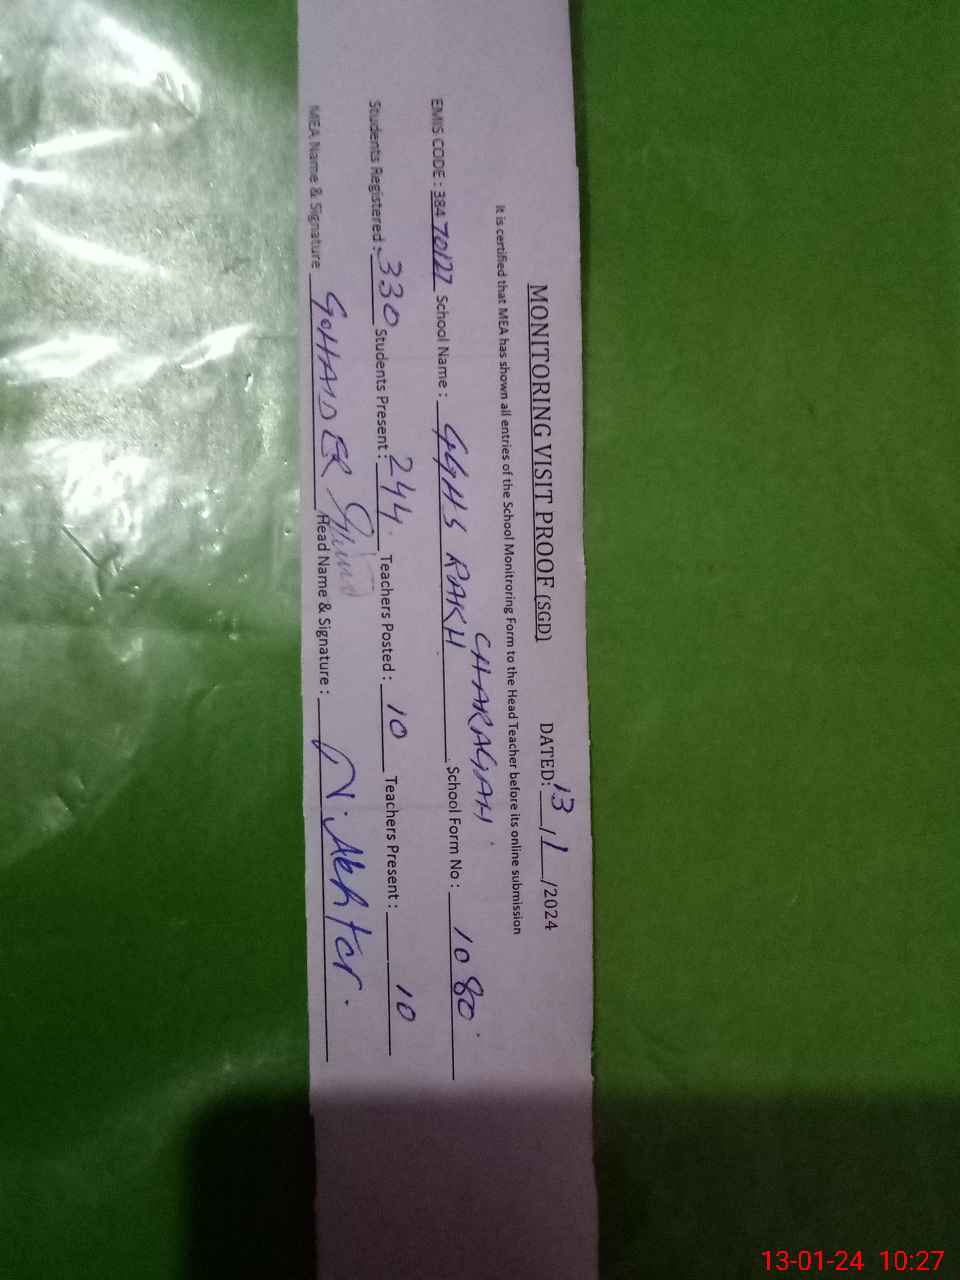 MONITORING VISIT PROOF (SGD) DATED: 13/1/2024
It is certified that MEA has shown all entries of the School Monitroring Form to the Head Teacher before its online submission
CHARAGAH
EMIS CODE : 384 70127 School Name : GGHS RAKH School Form No : 1080
Students Registered : 330 Students Present : 244 Teachers Posted : 10 Teachers Present : 10
MEA Name & Signature Head Name & Signature : N. Akhter
13-01-24 10:27